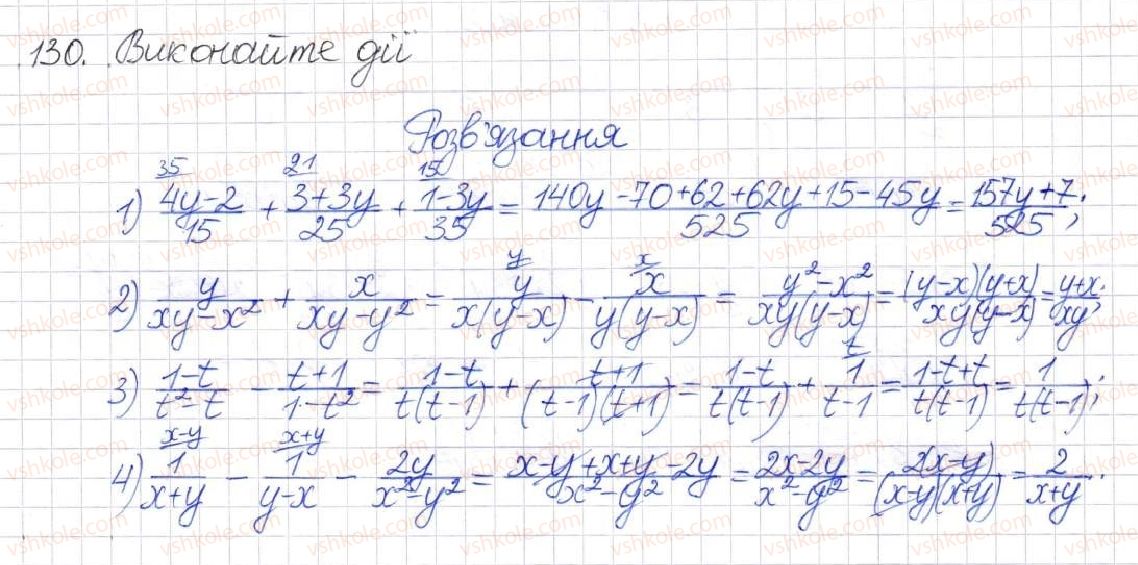 130. Виконайте дії
Розв'язання
1) \frac{4y-2}{15}^{35} + \frac{3+3y}{25}^{21} + \frac{1-3y}{35}^{15} = \frac{140y-70+62+62y+15-45y}{525} = \frac{157y+7}{525};
2) \frac{y}{xy-x^2} + \frac{x}{xy-y^2} = \frac{y}{x(y-x)}^{y} - \frac{x}{y(y-x)}^{x} = \frac{y^2-x^2}{xy(y-x)} = \frac{(y-x)(y+x)}{xy(y-x)} = \frac{y+x}{xy};
3) \frac{1-t}{t^2-t} - \frac{t+1}{1-t^2} = \frac{1-t}{t(t-1)} + \frac{t+1}{(t-1)(t+1)} = \frac{1-t}{t(t-1)} + \frac{1}{t-1}^{t} = \frac{1-t+t}{t(t-1)} = \frac{1}{t(t-1)};
4) \frac{1}{x+y}^{x-y} - \frac{1}{y-x}^{x+y} - \frac{2y}{x^2-y^2} = \frac{x-y+x+y-2y}{x^2-y^2} = \frac{2x-2y}{x^2-y^2} = \frac{2(x-y)}{(x-y)(x+y)} = \frac{2}{x+y}.